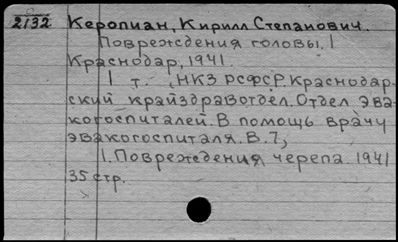 2132 Керопиан, Кирилл Степанович.
Повреждения головы. |
Краснодар, 1941.
| т. (НКЗ РСФСР. Краснодар-
ский крайздравотдел. Отдел эва-
когоспиталей. В помощь врачу
эвакогоспиталя. В. 7,
1. Повреждения черепа. 1941
35 стр.